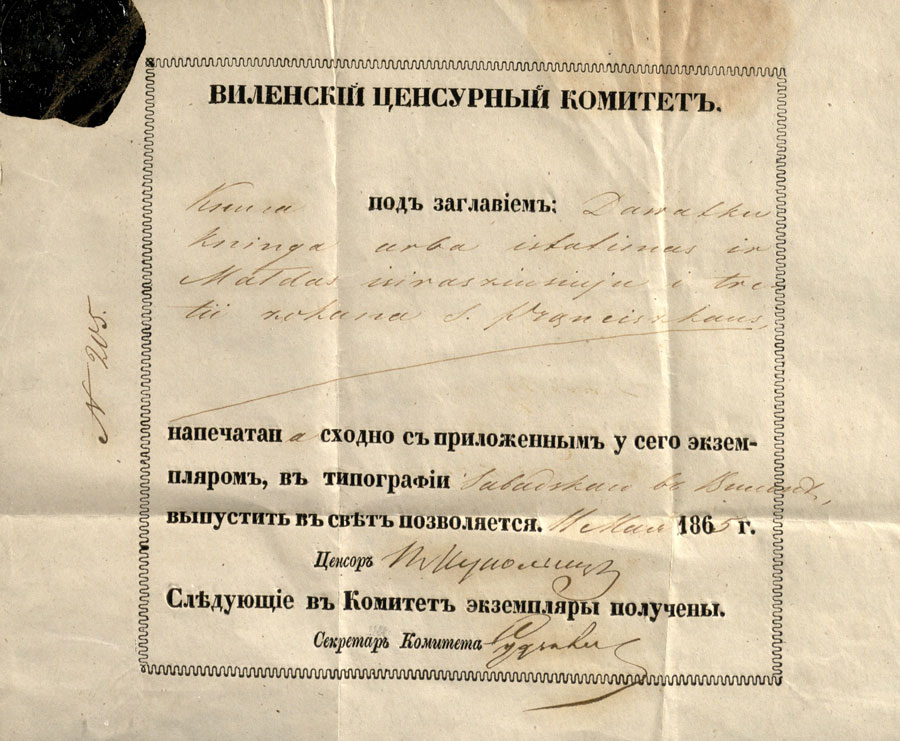 ВИЛЕНСКІЙ ЦЕНСУРНЫЙ КОМИТЕТЪ.
Книга подъ заглавіемъ: Dawatku
kninga arba istatimas ir
Maldas
zokana S. Pranciszkaus,
N 205.
напечатана сходно съ приложеннымъ у сего экзем-
пляромъ, въ типографіи въ Вильнѣ,
выпустить въ свѣтъ позволяется. 11 Мая 1865 г.
Ценсоръ
Слѣдующіе въ Комитетъ экземпляры получены.
Секретарь Комитета